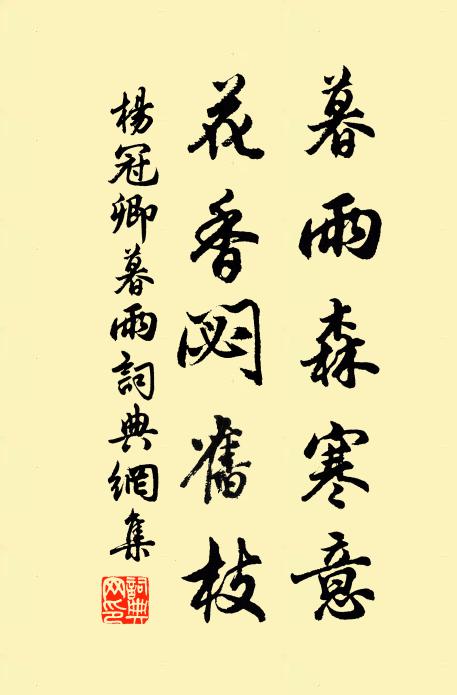 暮雨森寒意
花香閟舊枝
楊冠卿暮雨詞典網集
詞典網印